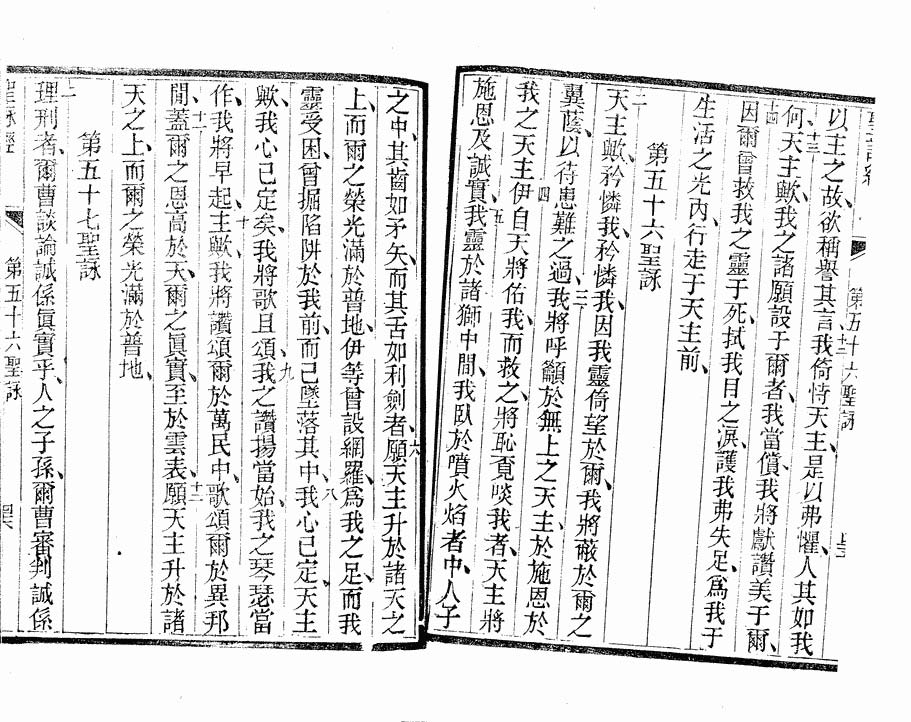 以主之故、欲稱譽其言、我倚恃天主、是以弗懼、人其如我
何、天主歟、我之諸願設于爾者、我當償、我將獻讚美于爾、
因爾曾救我之靈于死、拭我目之淚、護我弗失足、爲我于
生活之光內、行走于天主前、
第五十六聖詠
天主歟、矜憐我、矜憐我、因我靈倚望於爾、我將蔽於爾之
翼蔭、以待患難之過、我將呼籲於無上之天主、於施恩於
我之天主、伊自天將佑我而救之、將恥覔啖我者、天主將
施恩及誠實、我靈於諸獅中間、我臥於噴火焰者中、人子
第五十六聖詠
之中、其齒如矛矢、而其舌如利劍者、願天主升於諸天之
上、而爾之榮光滿於普地、伊等曾設網羅爲我之足、而我
靈受困、曾掘陷阱於我前、而已墜落其中、我心已定、天主
歟、我心已定矣、我將歌且頌、我之讚揚當始、我之琴瑟當
作、我將早起、主歟、我將讚頌爾於萬民中、歌頌爾於異邦
間、蓋爾之恩高於天、爾之眞實至於雲表、願天主升於諸
天之上、而爾之榮光滿於普地、
第五十七聖詠
理刑者、爾曹談論誠係眞實乎、人之子孫、爾曹審判誠係
聖詠經
第五十六聖詠